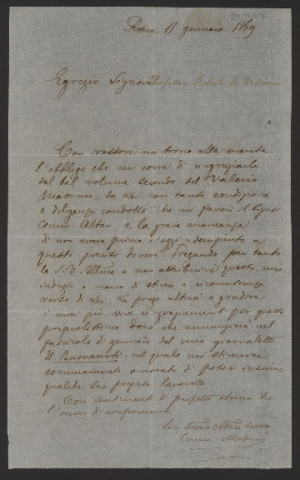 Roma 15 gennaio 1869
Egregio Signor Professore
Con rossore mi torna alla mente
l'obbligo che mi corre di ringraziarla
del bel volume secondo del Valerio
Massimo, da Lei con tanta erudizione
e diligenza condotto, che mi favorì il Signor
Conte e la grave mancanza
di non aver prima d'oggi adempiuto a
questo preciso dovere. Pregando per tanto
la S. V. Ill.ma a non attribuire questo mio
indugio a meno di stima e riconoscenza
verso di Lei, La prego altresì a gradire
i miei più vivi ringraziamenti per questo
pregevolissimo dono che annunzierò nel
fascicolo di gennaio del mio giornaletto
il Buonarroti, nel quale mi stimerei
sommamente onorato di poter inserire
qualche suo pregiato lavoretto.
Con sentimenti di perfetta stima ho
l'onore di confermarmi